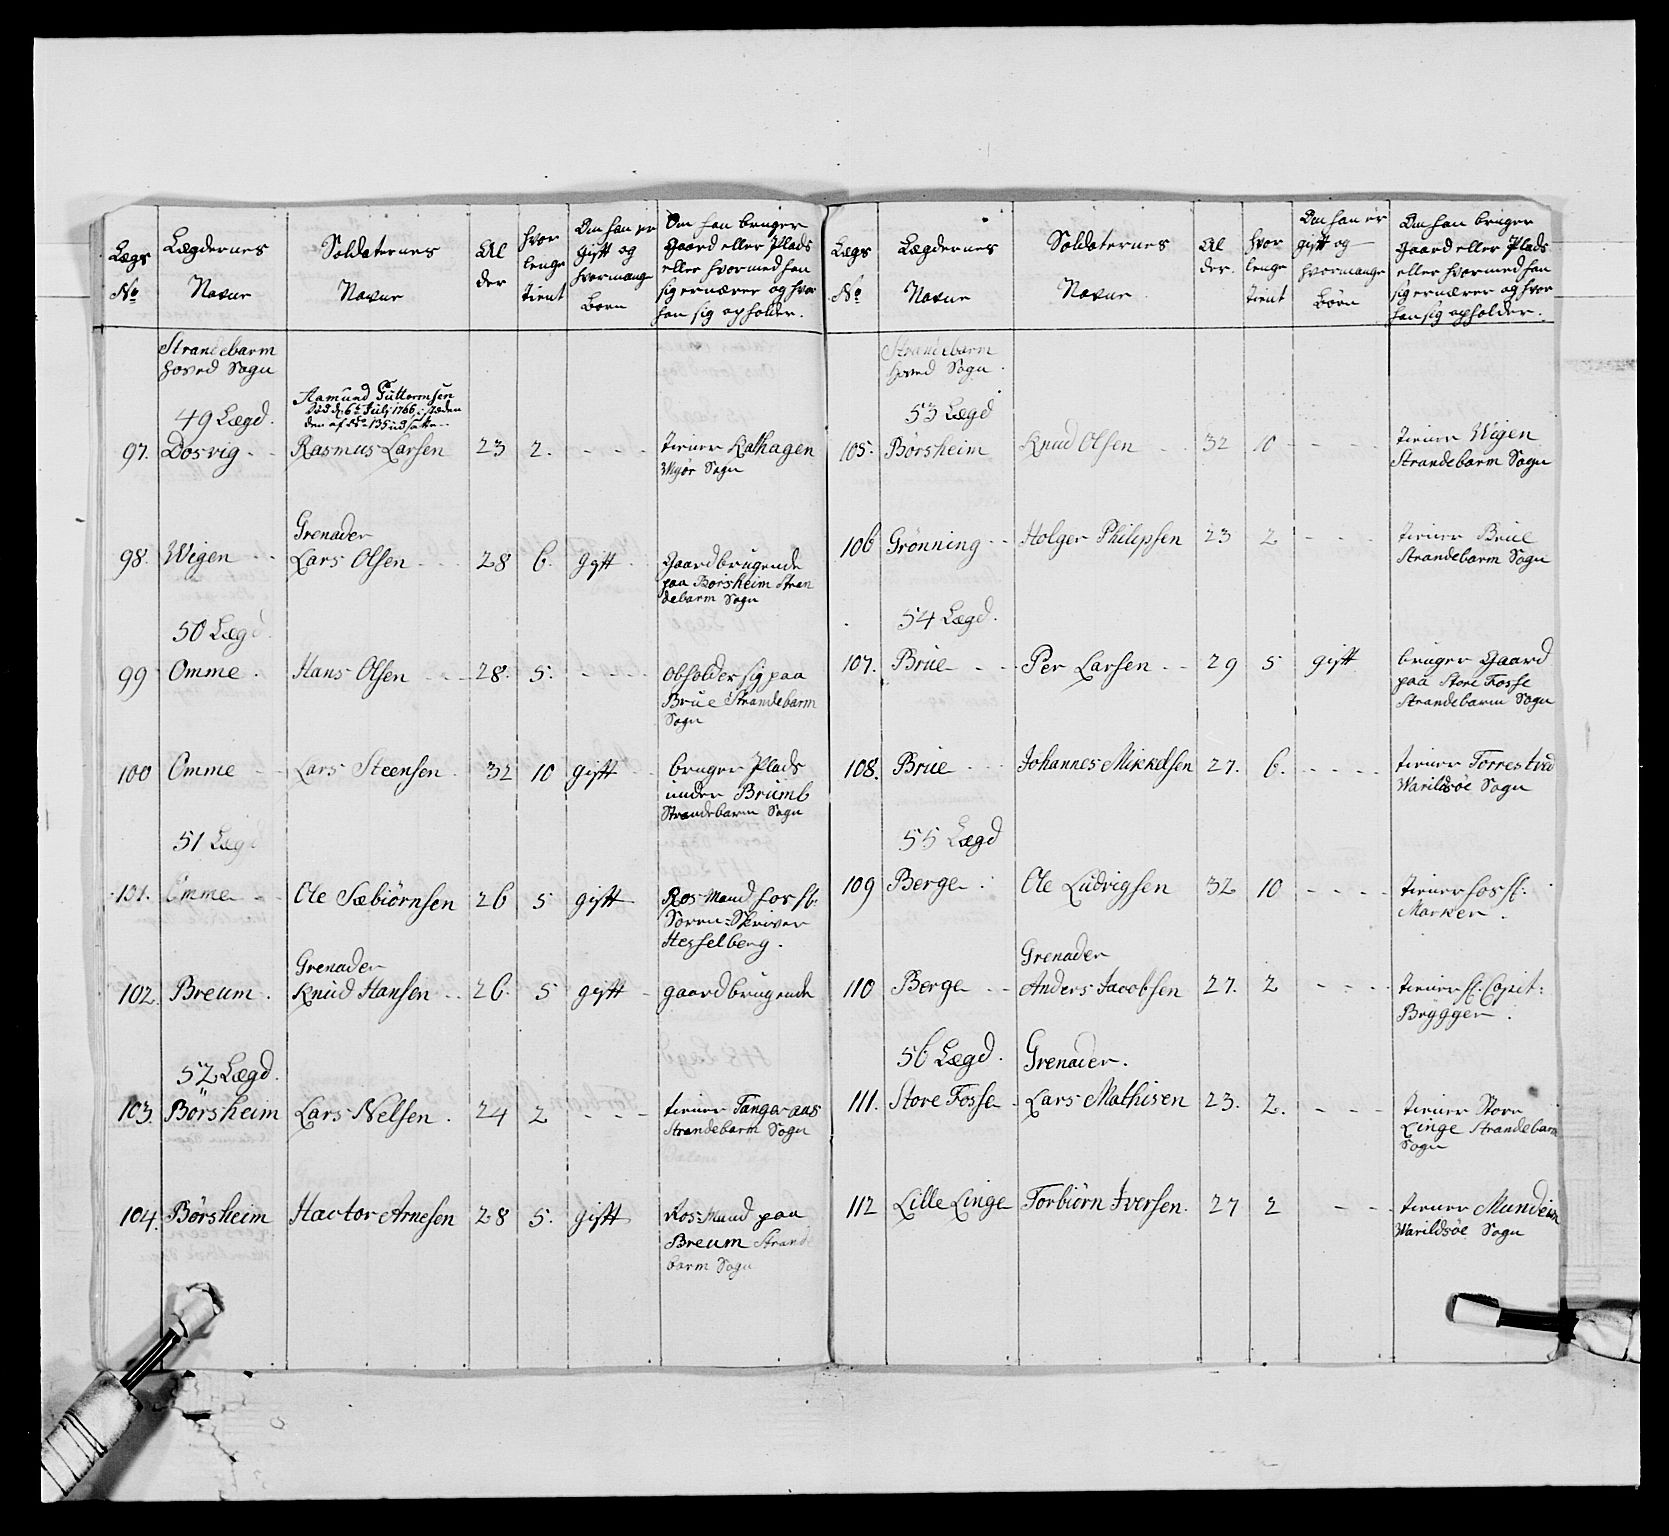 Lægs
No
Lægdernes
Navne
Soldaternes
Navne
Al
der
hvor
lenge
tient
Om han er
gift og
hvormange
Born
Om han bruger
Gaard eller Plads
eller hvormed han
sig ernærer og hvor
han sig opholder.
Strandebarm
hoved Sogn
49 Lægd.
Aamund Guttormsen
død d. 6te Julj 1766, i steden
den af No 135 udsatte
97. Dosvig - - Rasmus Larsen 23 2. - - - tiener Kalhagen
Wigør Sogn
Grenader
98. Wigen - - Lars Olsen - - - 28 6. gift - Gaardbrugende
paa Børsheim Stran
debarm Sogn
50 Lægd.
99 Omme . Hans Olsen - - - 28. 5. - - - - obholder sig paa
Brue Strandebarm
Sogn
100 Omme - - Lars Steensen . 32 10 gift - - bruger Plads
under Brumb
Strandebarm Sogn
51 Lægd
101. Omme - - Ole Sæbiörnsen 26 5 gift Ros Mand hos Hr:
Soren-Skriver
Hesselberg .
Grenader
102. Breum . Knud Hansen - . 26. 5 gift - gaardbrugende
52 Lægd.
103. Börsheim Lars Nelsen . 24 2 - - - tiener Tangeraas
Strandebarm Sogn
104. Børsheim Hactor Arnesen 28 5. gift Ros-Mand paa
Breum Strande
barm Sogn
Lægs
No
Lægdernes
Navne
Soldaternes
Navne
Al
der.
hvor
lenge
tient
Om han er
gift og
hvormange
Börn
Om han bruger
Gaard eller Plads
eller hvormed han
sig ernærer og hvor
han sig opholder.
Strandebarm
hoved Sogn .
53 Lægd
105. Børsheim Knud Olsen - . 32 10 - - - - tiener Wigen
Strandebarm Sogn
106 Grønning - - Holger Philipsen 23 2 - - - tiener Brue
Strandebarm Sogn
54 Lægd.
107. Brue - - - Per Larsen - - 29 5 gift bruger Gaard
paa Store Fosse
Strandebarm Sogn
108. Brue - - - Johannes Mikkelsen 27. 6. - - - - tiener Torrestved
Warildsöe Sogn
55 Lægd
109 Berge . Ole Ludvigsen 32 10 - - - - tiener hos Hr.
Marker .
Grenader
110 Berge - - Anders Jacobsen 27. 2 - - - tiener Hr. Capit:
Brygger .
56 Lægd. Grenader.
111. Store Fosse - Lars Mathisen 23. 2. - - - tiener Store
Linge Strandebarm
Sogn
112 Lille Linge Torbiörn Iversen. 27 2 - - tiener Mundeim
Warildsöe Sogn